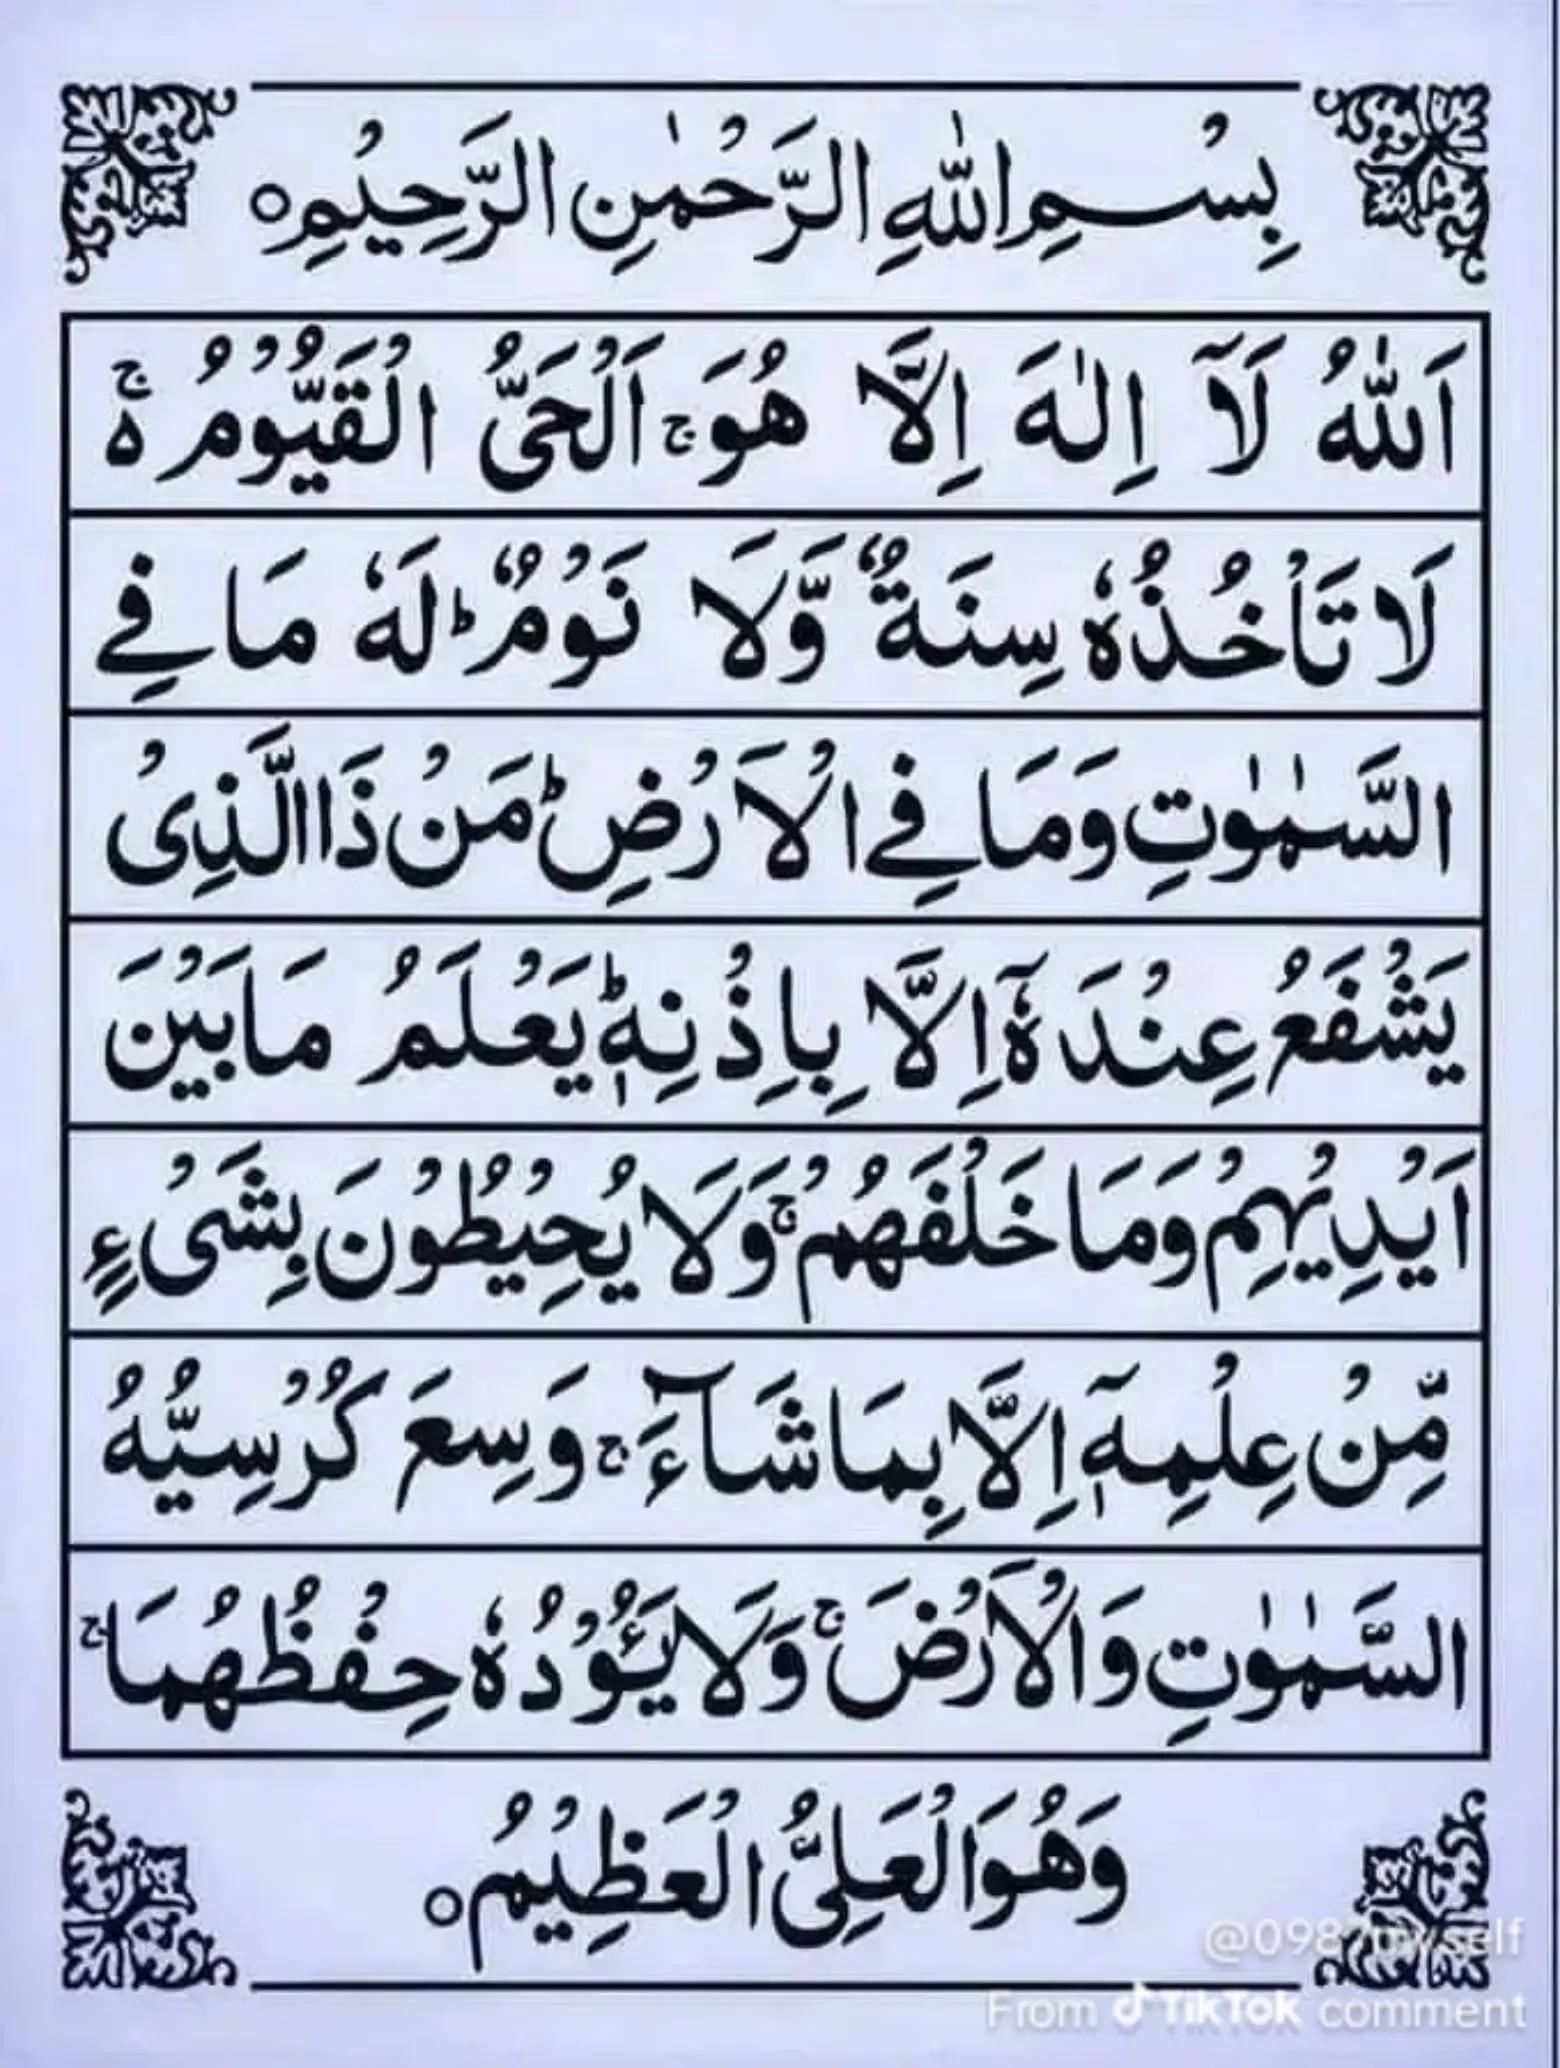 بِسْمِ اللّٰهِ الرَّحْمٰنِ الرَّحِيْمِ ○
اَللّٰهُ لَآ اِلٰهَ اِلَّا هُوَ ۚ اَلْحَىُّ الْقَيُّوْمُ ۚ ه
لَا تَاْخُذُهٗ سِنَةٌ وَّلَا نَوْمٌ ؕ لَهٗ مَا فِے
السَّمٰوٰتِ وَمَا فِے الْاَرْضِ ؕ مَنْ ذَا الَّذِىْ
يَشْفَعُ عِنْدَهٗٓ اِلَّا بِاِذْنِهٖ ؕ يَعْلَمُ مَا بَيْنَ
اَيْدِيْهِمْ وَمَا خَلْفَهُمْ ۚ وَلَا يُحِيْطُوْنَ بِشَىْءٍ
مِّنْ عِلْمِهٖٓ اِلَّا بِمَا شَآءَ ۚ وَسِعَ كُرْسِيُّهُ
السَّمٰوٰتِ وَالْاَرْضَ ۚ وَلَا يَئُوْدُهٗ حِفْظُهُمَا ۚ
وَهُوَ الْعَلِىُّ الْعَظِيْمُ ○
From TikTok comment